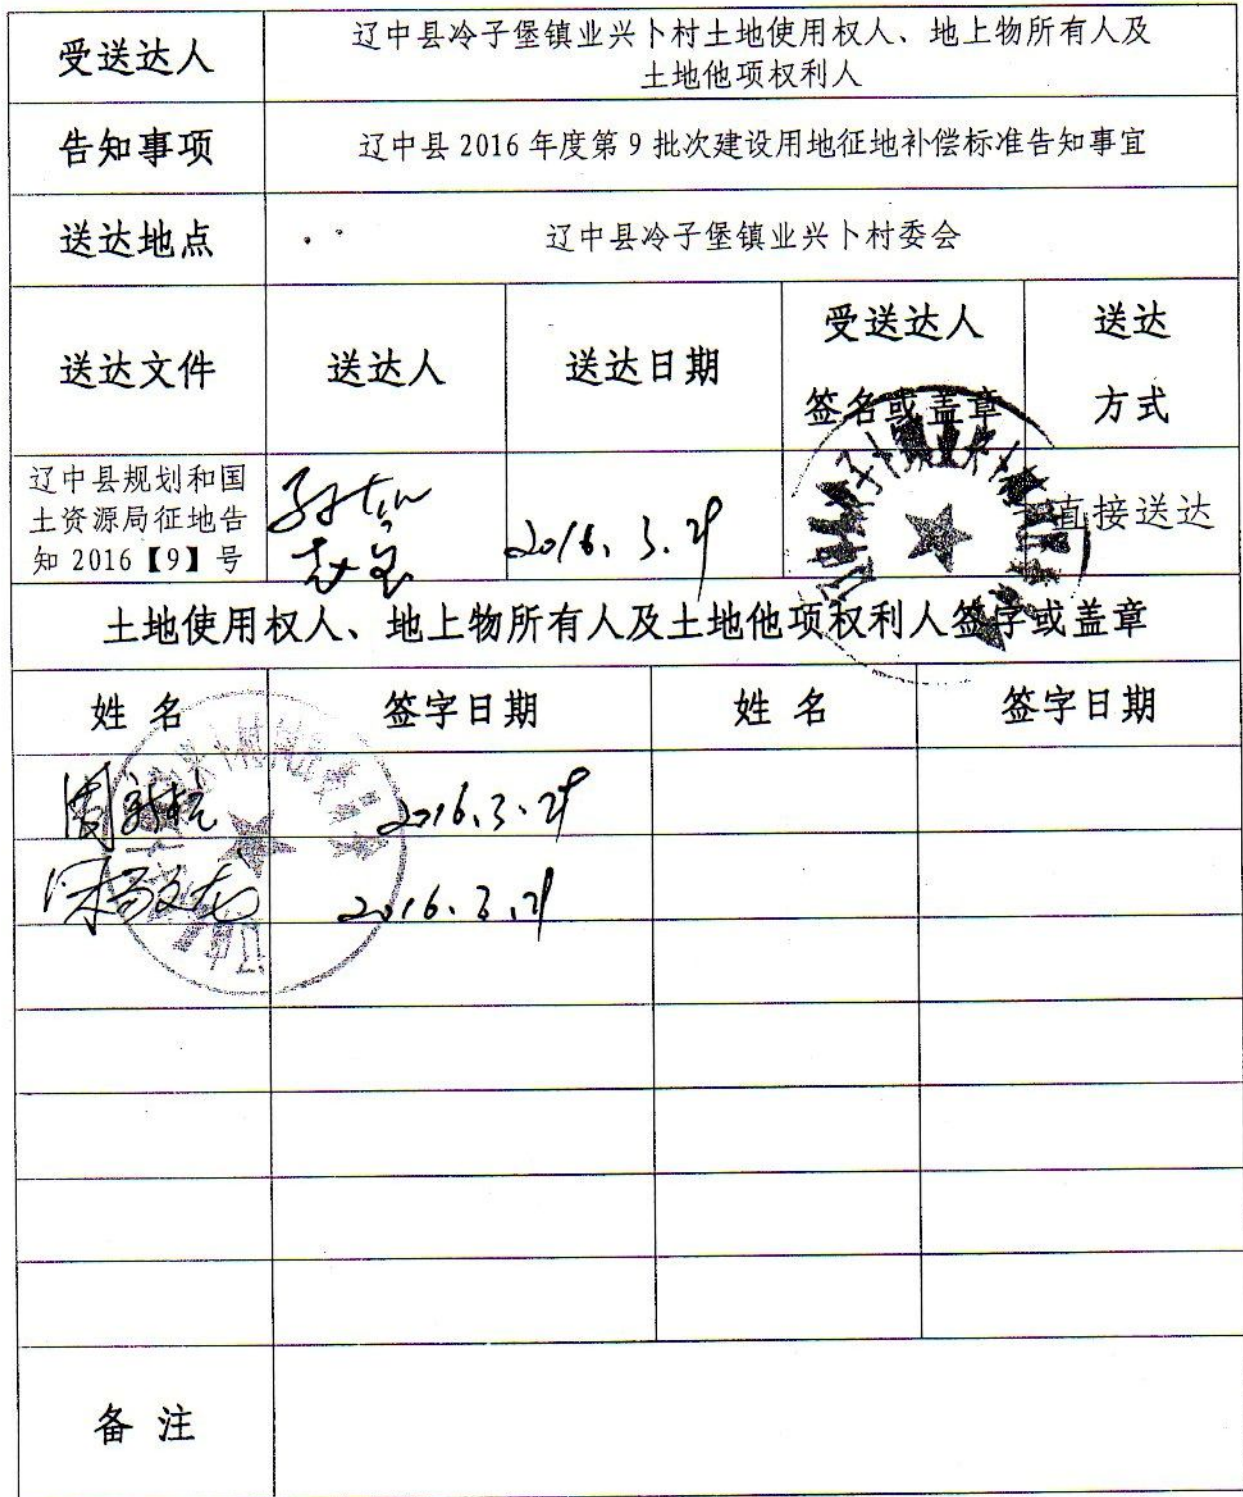 受送达人
辽中县冷子堡镇业兴卜村土地使用权人、地上物所有人及
土地他项权利人
告知事项
辽中县 2016 年度第 9 批次建设用地征地补偿标准告知事宜
送达地点
辽中县冷子堡镇业兴卜村委会
送达文件
送达人
送达日期
受送达人
签名或盖章
送达
方式
辽中县规划和国
土资源局征地告
知 2016【9】号
直接送达
土地使用权人、地上物所有人及土地他项权利人签字或盖章
姓 名
签字日期
姓 名
签字日期
备 注